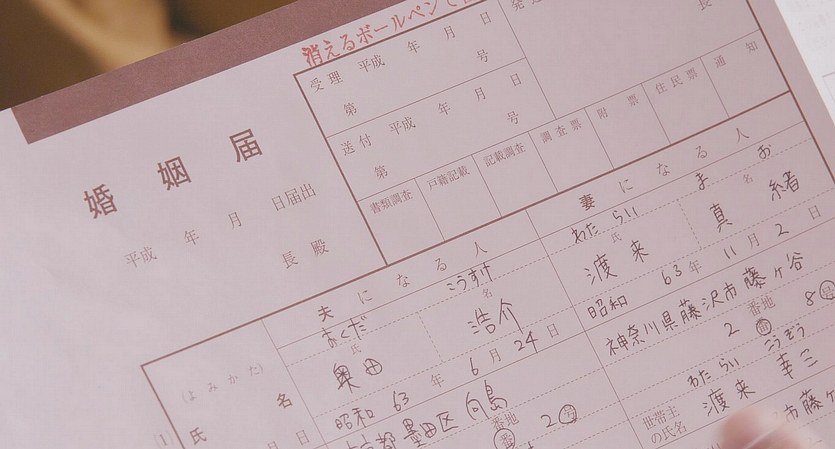 消えるボールペンで
受理 平成 年 月 日
第 号
発送
長
送付 平成 年 月 日
第 号
書類調査 戸籍記載 記載調査 調査票 附票 住民票 通知
婚姻届
平成 年 月 日届出
長殿
夫になる人 妻になる人
(よみかた) おくだ こうすけ わたらい まお
氏名 氏 名 氏 名
奥田 浩介 渡来 真緒
昭和63年6月24日 昭和63年11月2日
墨田区向島 神奈川県藤沢市藤ヶ谷
番地 番 2号 2 番地 番 8号
わたらい こうぞう
世帯主の氏名 渡来 幸三
市藤ヶ